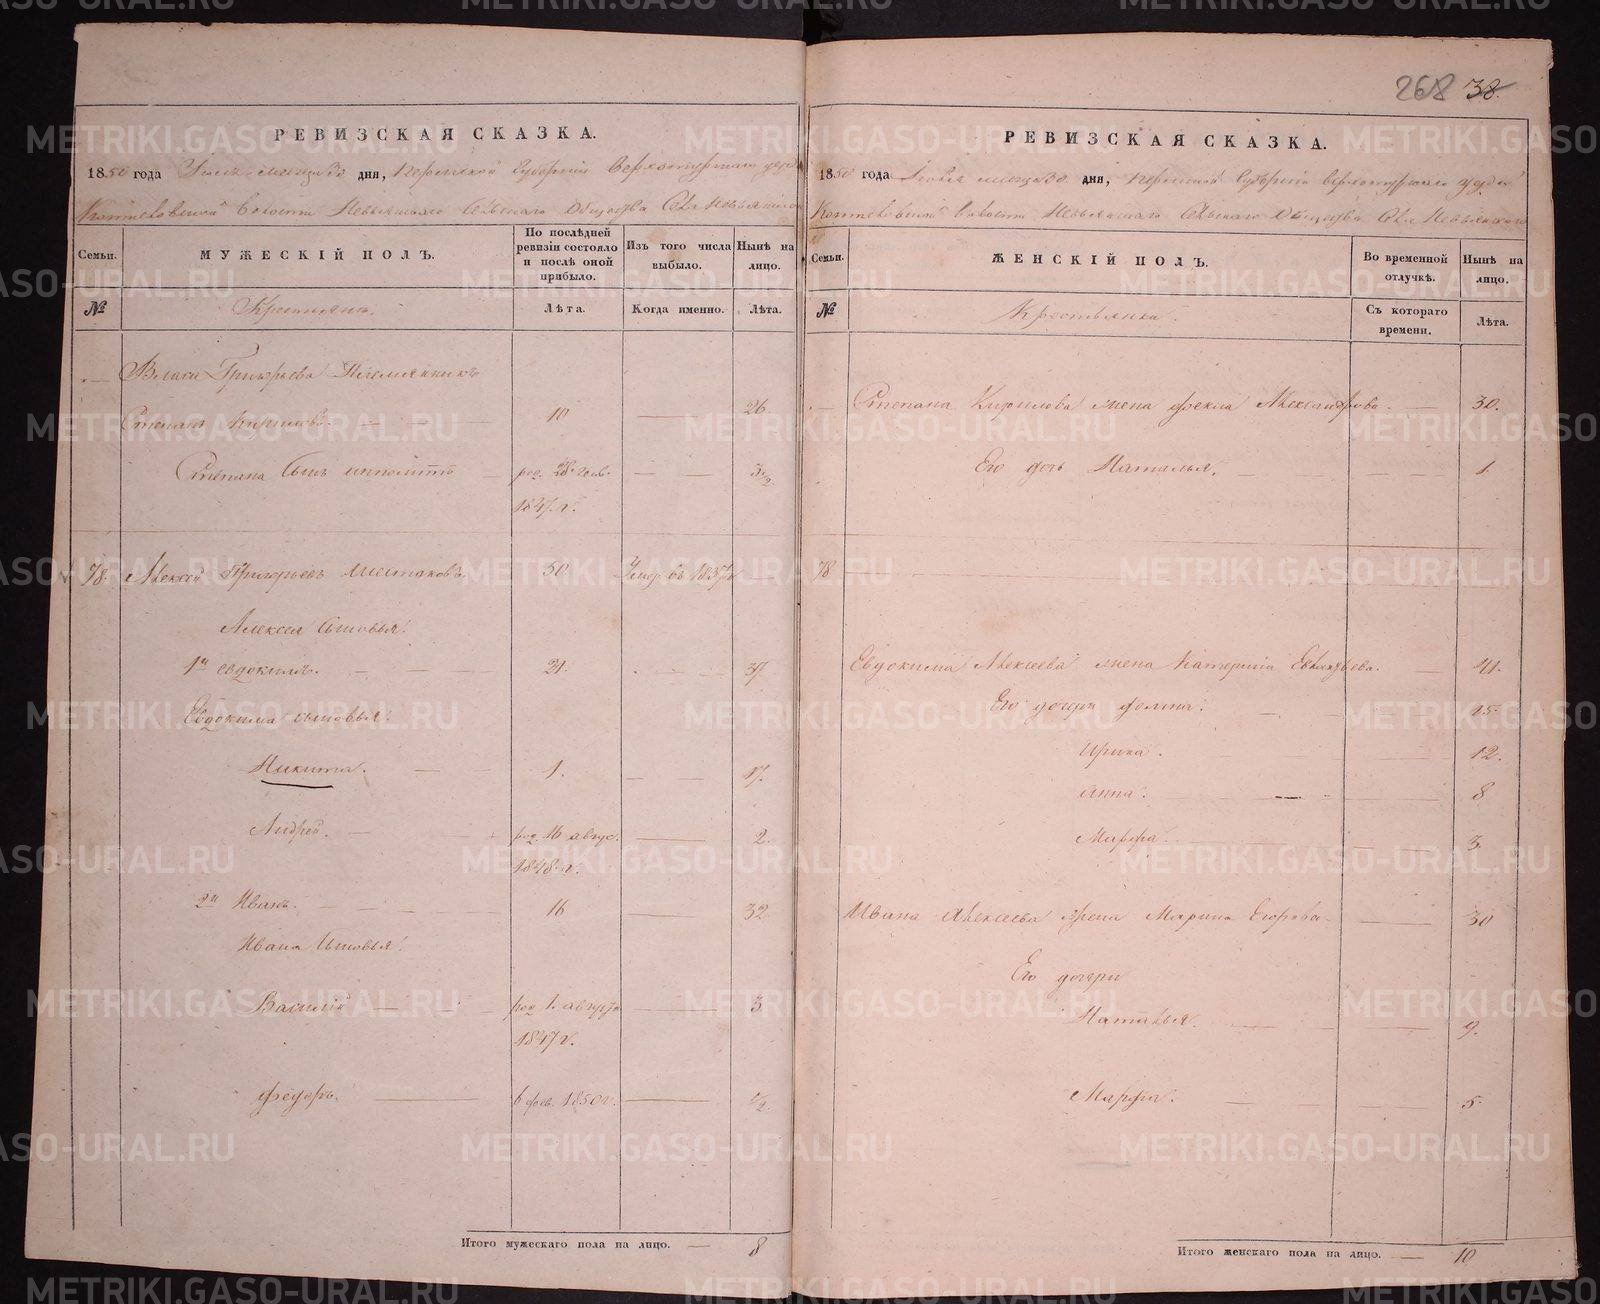 268 38.
РЕВИЗСКАЯ СКАЗКА.
1850 года Июля месяца 30 дня, Пермской Губернии Верхотурскаго уезда
Коптеловской Волости Невьянскаго Сельскаго Общества Села Невьянскаго
Семьи.
МУЖЕСКІЙ ПОЛЪ.
По послѣдней ревизіи состояло и послѣ оной прибыло.
Изъ того числа выбыло.
Нынѣ на лицо.
№
Крестьянъ.
Лѣта.
Когда именно.
Лѣта.
Власа Григорьева Племянникъ
Степанъ Кириловъ. 10 26
Степана Сынъ Ипполитъ род. 28 генв. 3 1/2
1847 г.
78. Алексей Григорьевъ Шестаковъ. 50 Умер. въ 1837 г.
Алексея Сыновья:
1й Евдокимъ. 21. 37
Евдокима сыновья:
Никита. 1. 17.
Андрей. род. 16 август. 2.
1848. г.
2й Иванъ. 16 32
Ивана Сыновья:
Василій род 1. августа 3
1847 г.
Федоръ. 6 фев. 1850 г. 1/2
Итого мужескаго пола на лицо. 8
РЕВИЗСКАЯ СКАЗКА.
1850 года Июля месяца 30 дня, Пермской Губернии Верхотурскаго уезда
Коптеловской Волости Невьянскаго Сельскаго Общества Села Невьянскаго
Семьи.
ЖЕНСКІЙ ПОЛЪ.
Во временной отлучкѣ.
Нынѣ на лицо.
№
Крестьянка.
Съ котораго времени.
Лѣта.
Степана Кирилова жена Фекла Александрова 30.
Его дочь Наталья. 1.
78
Евдокима Алексеева жена Катерина 41.
Его дочери 15.
Ирина. 12.
Анна. 8
Марфа. 3.
Ивана Алексеева жена Марина Егорова 30
Его дочери
Наталья. 9.
Марфа. 5.
Итого женскаго пола на лицо. 10
METRIKI.GASO-URAL.RU